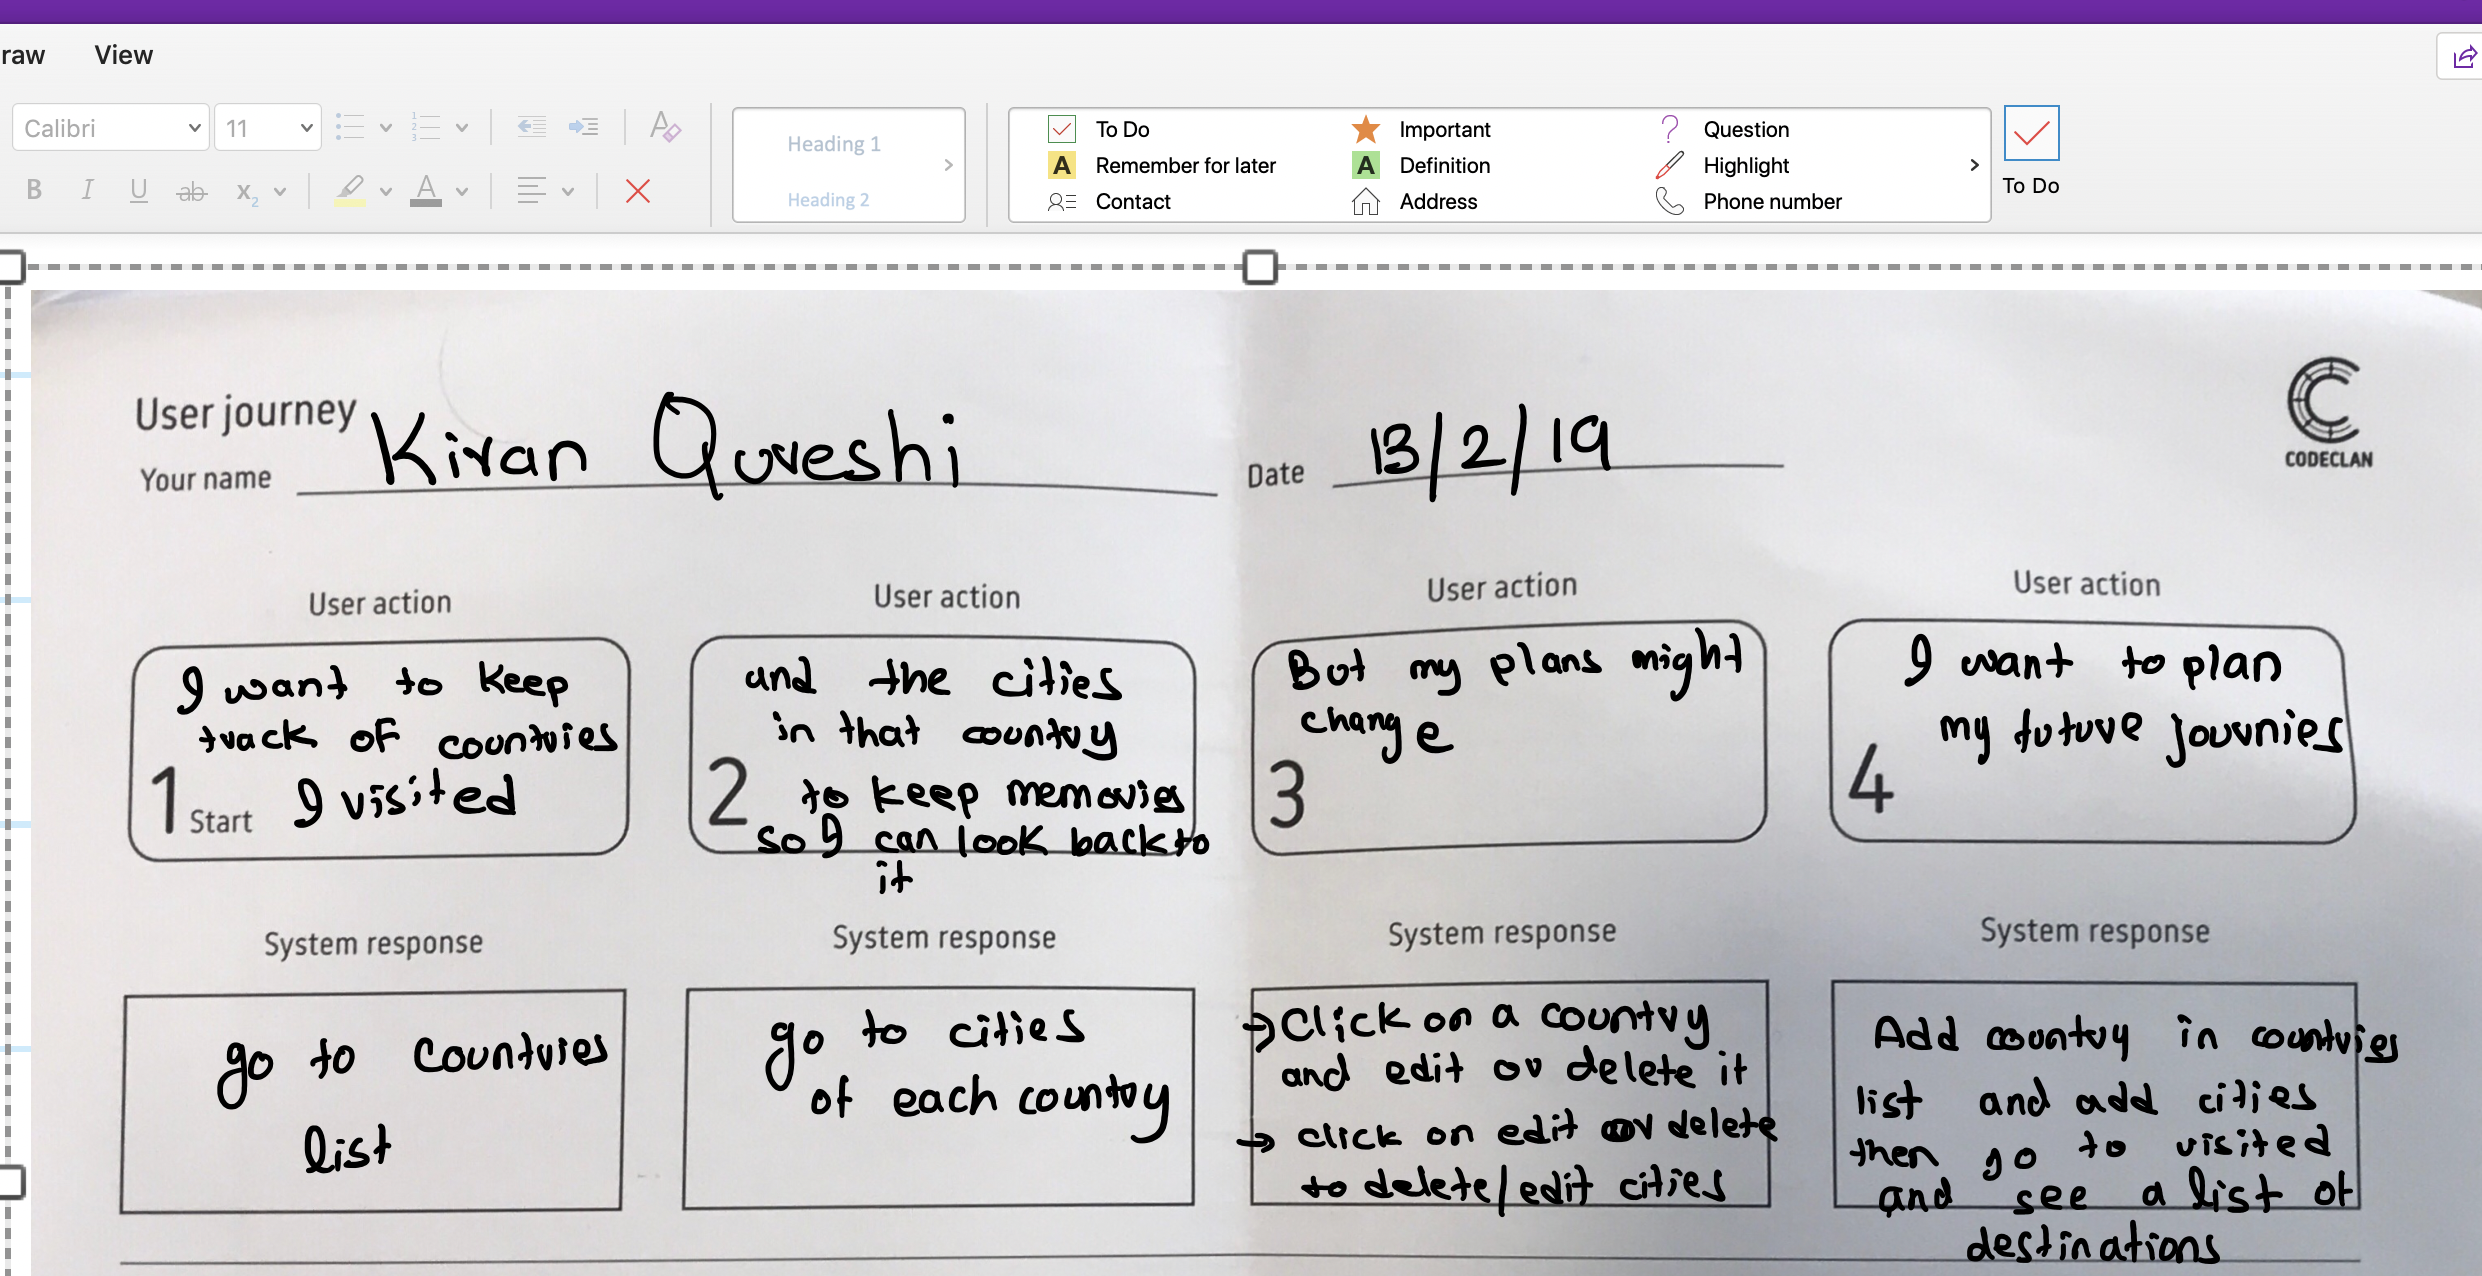 raw View
Calibri 11
Heading 1
Heading 2
To Do Important Question
Remember for later Definition Highlight
Contact Address Phone number
To Do
B I U ab x2 A
User journey
Your name Kiran Qureshi
Date 13/2/19
CODECLAN
User action
I want to keep
track of countries
I visited
1 Start
User action
and the cities
in that country
to keep memories
so I can look back to
it
2
User action
But my plans might
change
3
User action
I want to plan
my future journies
4
System response
go to countries
list
System response
go to cities
of each country
System response
→ Click on a country
and edit or delete it
→ click on edit or delete
to delete/edit cities
System response
Add country in countries
list and add cities
then go to visited
and see a list of
destinations